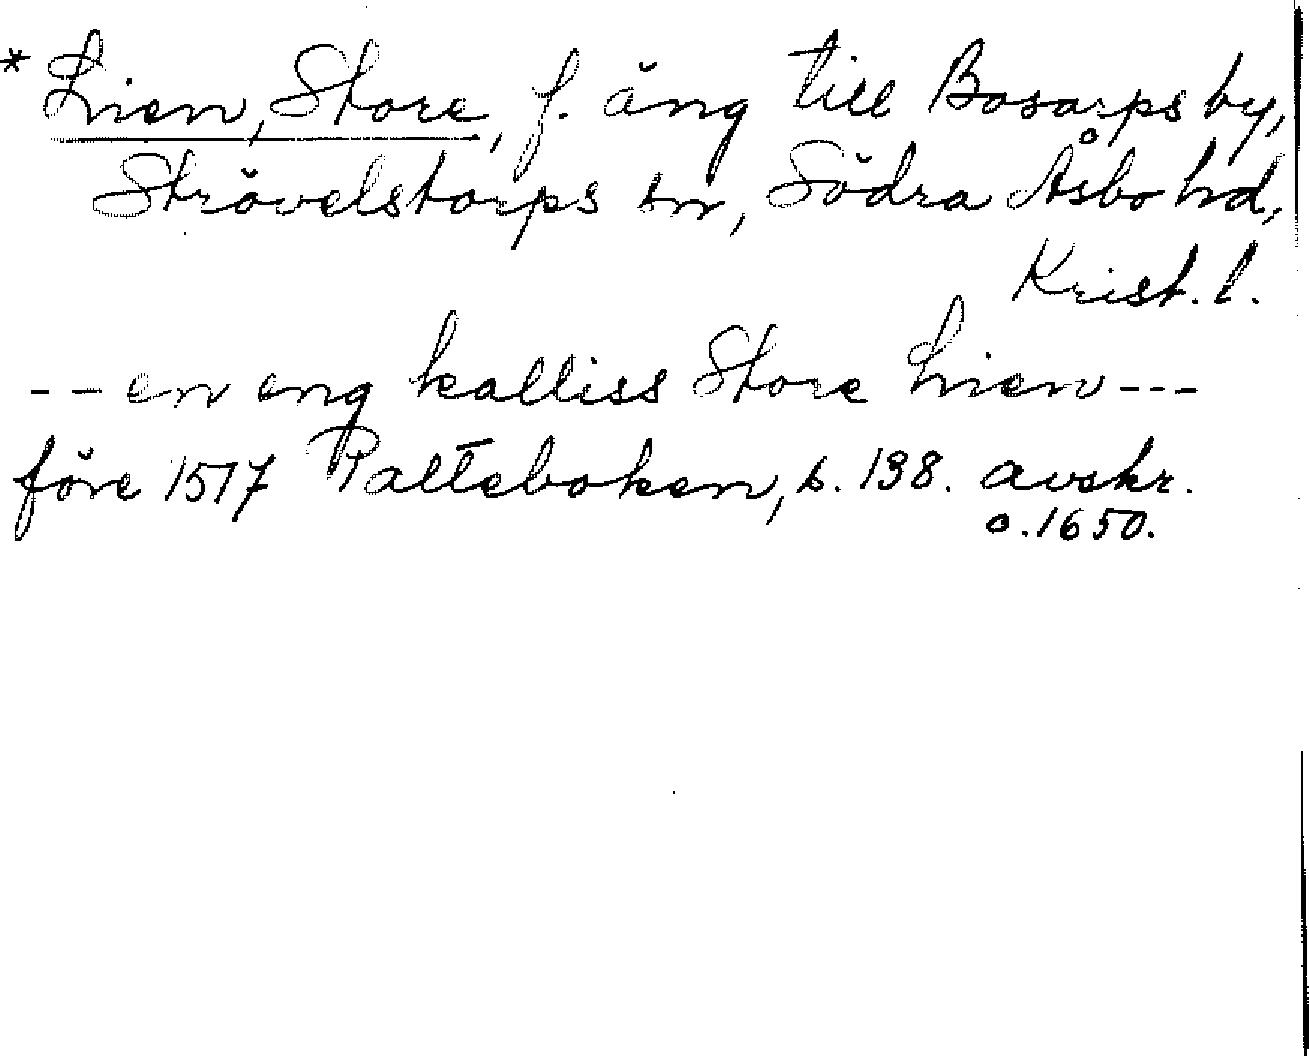 * Lnien, Store, f. äng till Bosarps by,
Strövelstorps sn, Södra Åsbo hd,
Krist. l.
-- en eng kalliss Store Lnien ---
före 1517 Palteboken, s. 198. avskr.
o. 1650.